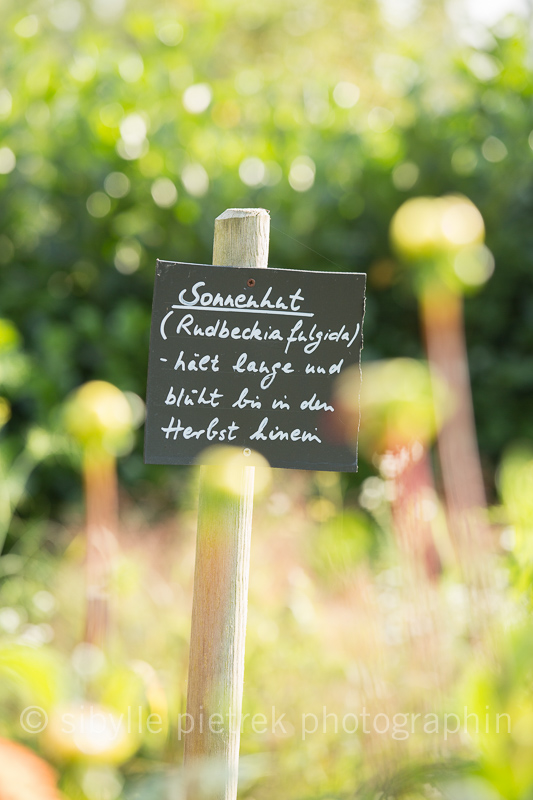 Sonnenhut
(Rudbeckia fulgida)
- hält lange und
blüht bis in den
Herbst hinein
© sibylle pietrek photographin